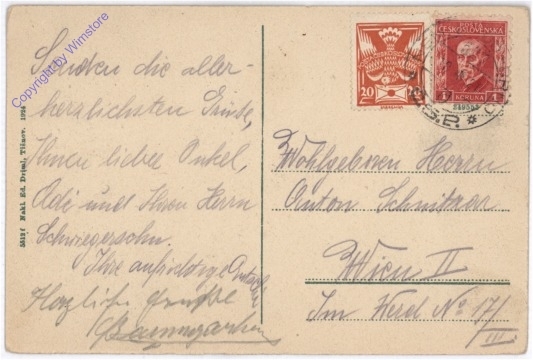 Senden die aller-
herzlichsten Grüße,
Ihnen lieber Onkel,
und Ihren Herrn
Schwiegersohn.
Ihre aufrichtige
Herzliche Grüße
Baumgarten
5512 f Nakl. Ed. Drjml, Tišnov. 1924
Copyright by Wimstore
20
POŠTA
ČESKOSLOVENSKÁ
1 KORUNA 1
Č.S.P.
Wohlgeboren Herrn
Anton Schnitzer
Wien II
Im Werd No 17/
III.